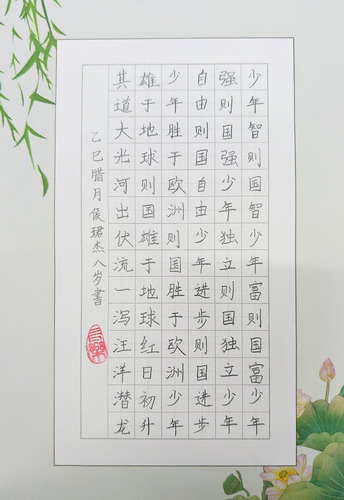 少年智则国智少年富则国富少年
强则国强少年独立则国独立少年
自由则国自由少年进步则国进步
少年胜于欧洲则国胜于欧洲少年
雄于地球则国雄于地球红日初升
其道大光河出伏流一泻汪洋潜龙
乙巳腊月侯珺杰八岁書